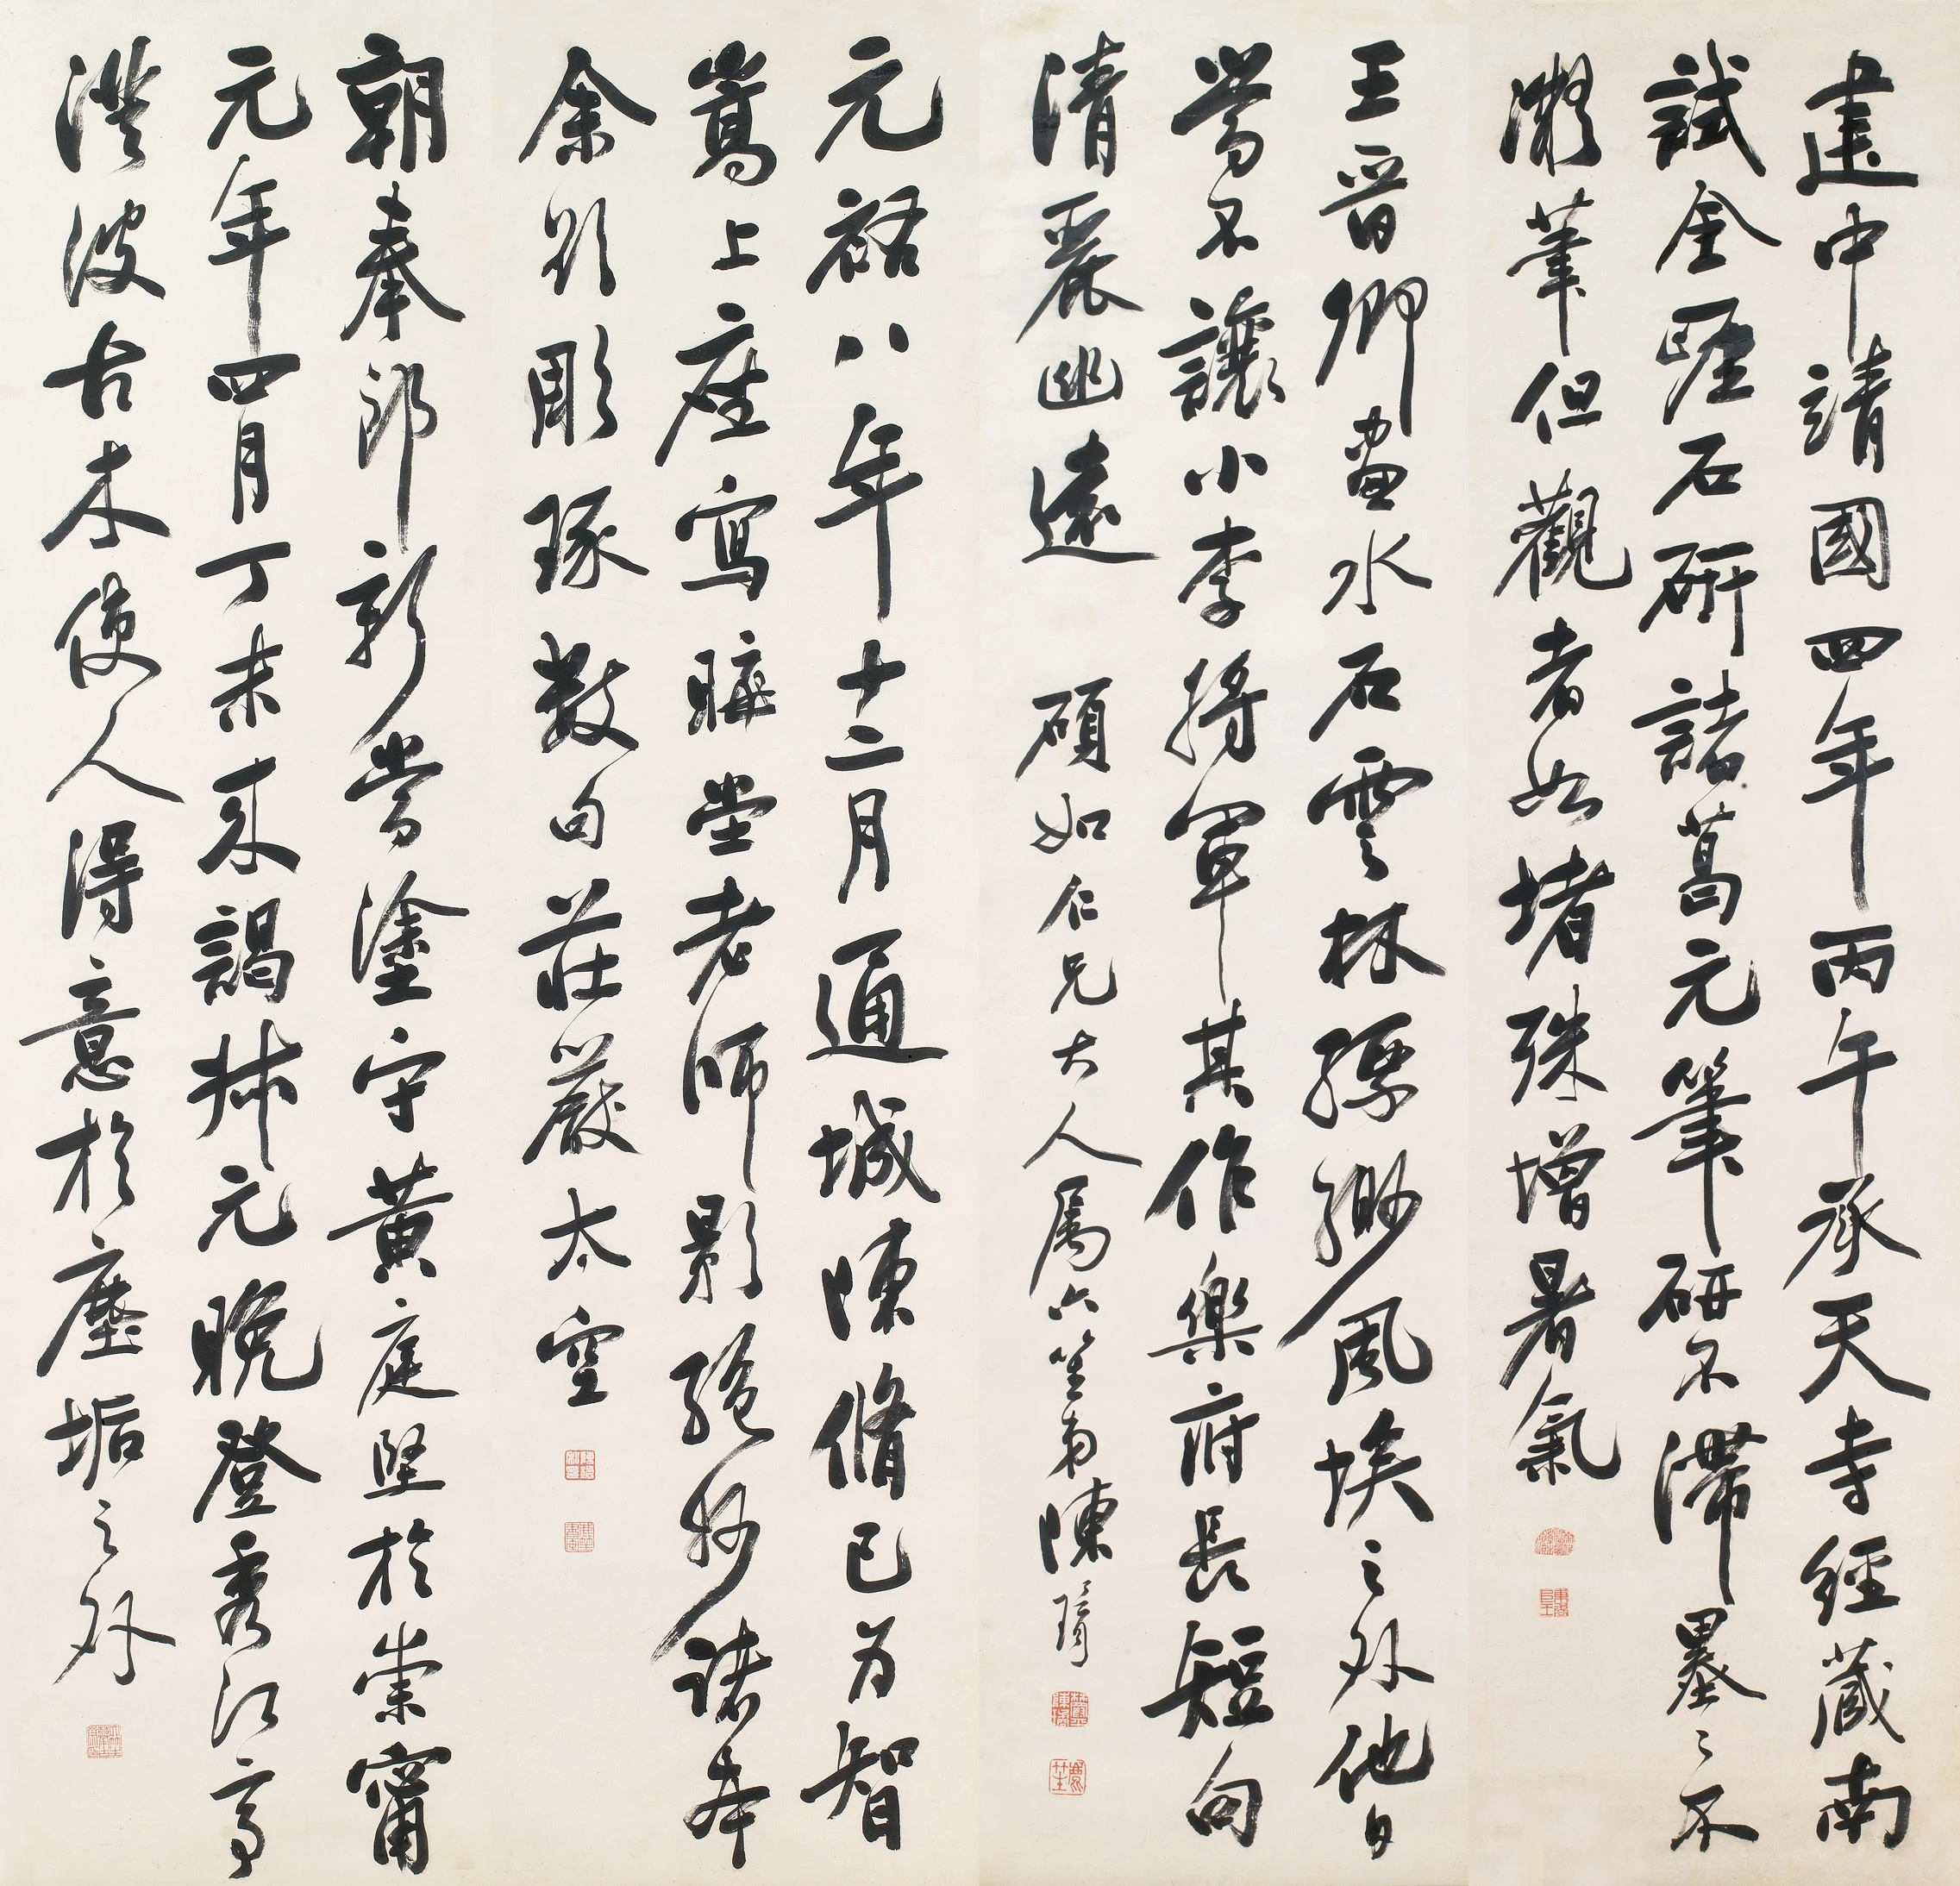 建中靖國四年丙午承天寺經藏南
試金崖石研諸葛元筆研不滯墨〻不
凝筆但觀者如堵殊增暑氣
王晉卿畫水石雲林縹緲風埃之外他日
當不讓小李將軍其作樂府長短句
清麗幽遠 碩如仁兄大人屬 六笙弟陳璚
元祐八年十二月通城陳脩己為智
嵩上座寫晦堂老師影絕妙諸本
余欲彫琢數句莊嚴太空
朝奉郎新當塗守黃庭堅於崇甯
元年四月丁未來謁叔元晚登秀江亭
澄波古木使人得意於塵垢之外